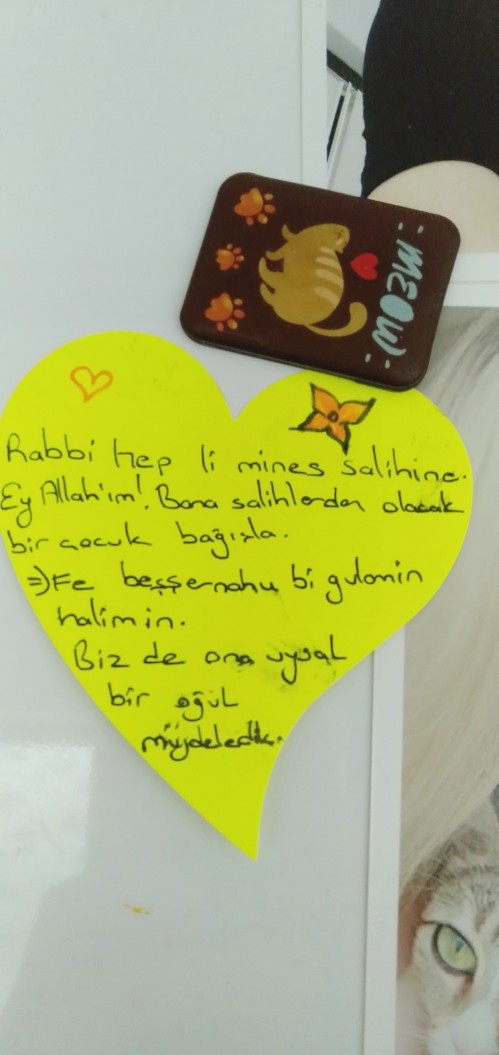 MEOW
Rabbi Hep li mines salihine.
Ey Allah'ım! Bana salihlerden olacak
bir çocuk bağışla.
=) Fe beşşernahu bi gulamin
halimin.
Biz de ona uysal
bir oğul
müjdeledik.